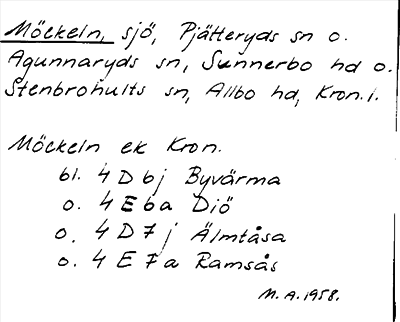 Möckeln, sjö, Pjätteryds sn o.
Agunnaryds sn, Sunnerbo hd o.
Stenbrohults sn, Allbo hd, Kron. l.
Möckeln ek Kron.
bl. 4 D 6 j Byvärma
o. 4 E 6 a Diö
o. 4 D 7 j Älmtåsa
o. 4 E 7 a Ramsås
M. A. 1958.